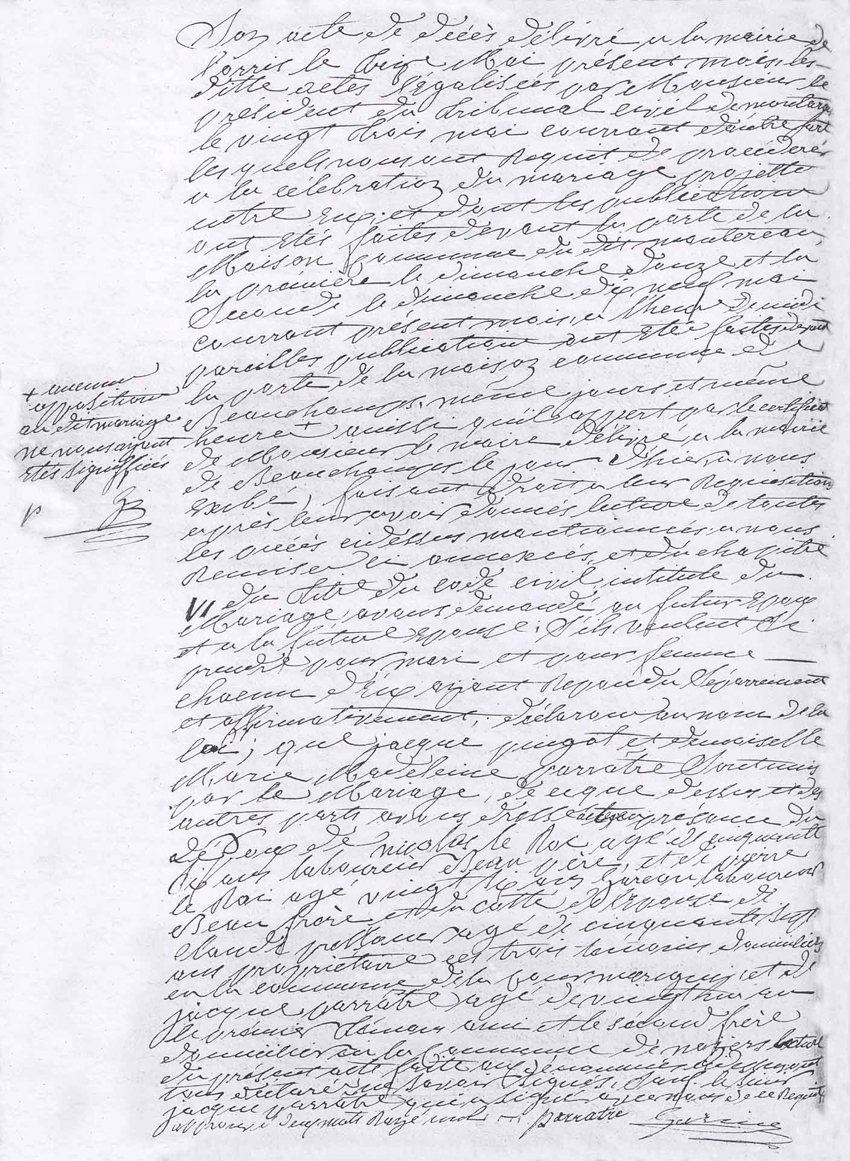 Son acte de décès délivré a la mairie de
Lorris le treize Mai présent mois les
ditte actes légalisées par Monsieur le
président du tribunal civil de montargis
le vingt trois mai courrant d'autre part
les quels nous ont Requit de procéder
a la célébration du mariage projetté
entre eux et dont les publications
ont etés faites devant la porte de la
Maison Commune du dit montereau,
la première le dimanche douze et la
Seconde le dimanche dix neuf mai
courrant présent mois, a l'heure de midi
pareilles publications ont etés faites devant
la porte de la maison commune de
Beauchamps, même jours et même
heure + aussi qu'il appert par le certificat
de Monsieur le maire délivré a la mairie
de Beauchamps le jour d'hier, a nous
exibé, faisant droit a leur Requisition
après leur avoir donnés lecture de toutes
les pièces cidessus mantionnées a nous
Remises et annexées, et du chapitre
VI du titre du code civil intitulé du
Mariage, avons demandé au futur Epoux
et a la future Epouse. S'ils veulent se
prendre pour mari et pour femme
chacun d'eux ayant Repondu Séparrement
et affirmativement, déclarons au nom de la
loi, que jacque pingot et demoiselle
Marie Madeleine parratre Sont unis
par le Mariage, de ce que dessus et des
autres parts avons dressé acte en présence du
de nicolas le Roi agé de cinquante
Six ans laboureur Beau père, et de pierre
le Roi agé vingt Six ans laboureur
Beau frère et du cotté de l'épouse de
claude agé de cinquante Sept
ans propriétaire ces trois témoins domiciliés
en la commune de la cour marigny et de
jacque parratre agé de vingt huit ans
le premier témoin ami et le second frère
domicilié en la Commune de noyers lecture
du présent acte faite aux denommés
tous déclaré ne savoir Signer, Sauf le
jacque parratre qui a Signé avec nous de ce Requit
approuvé deux mots Rayé nul parratre Garine
+ aucune
opposition
au dit mariage
ne nous ayant
etés signiffiées
p G